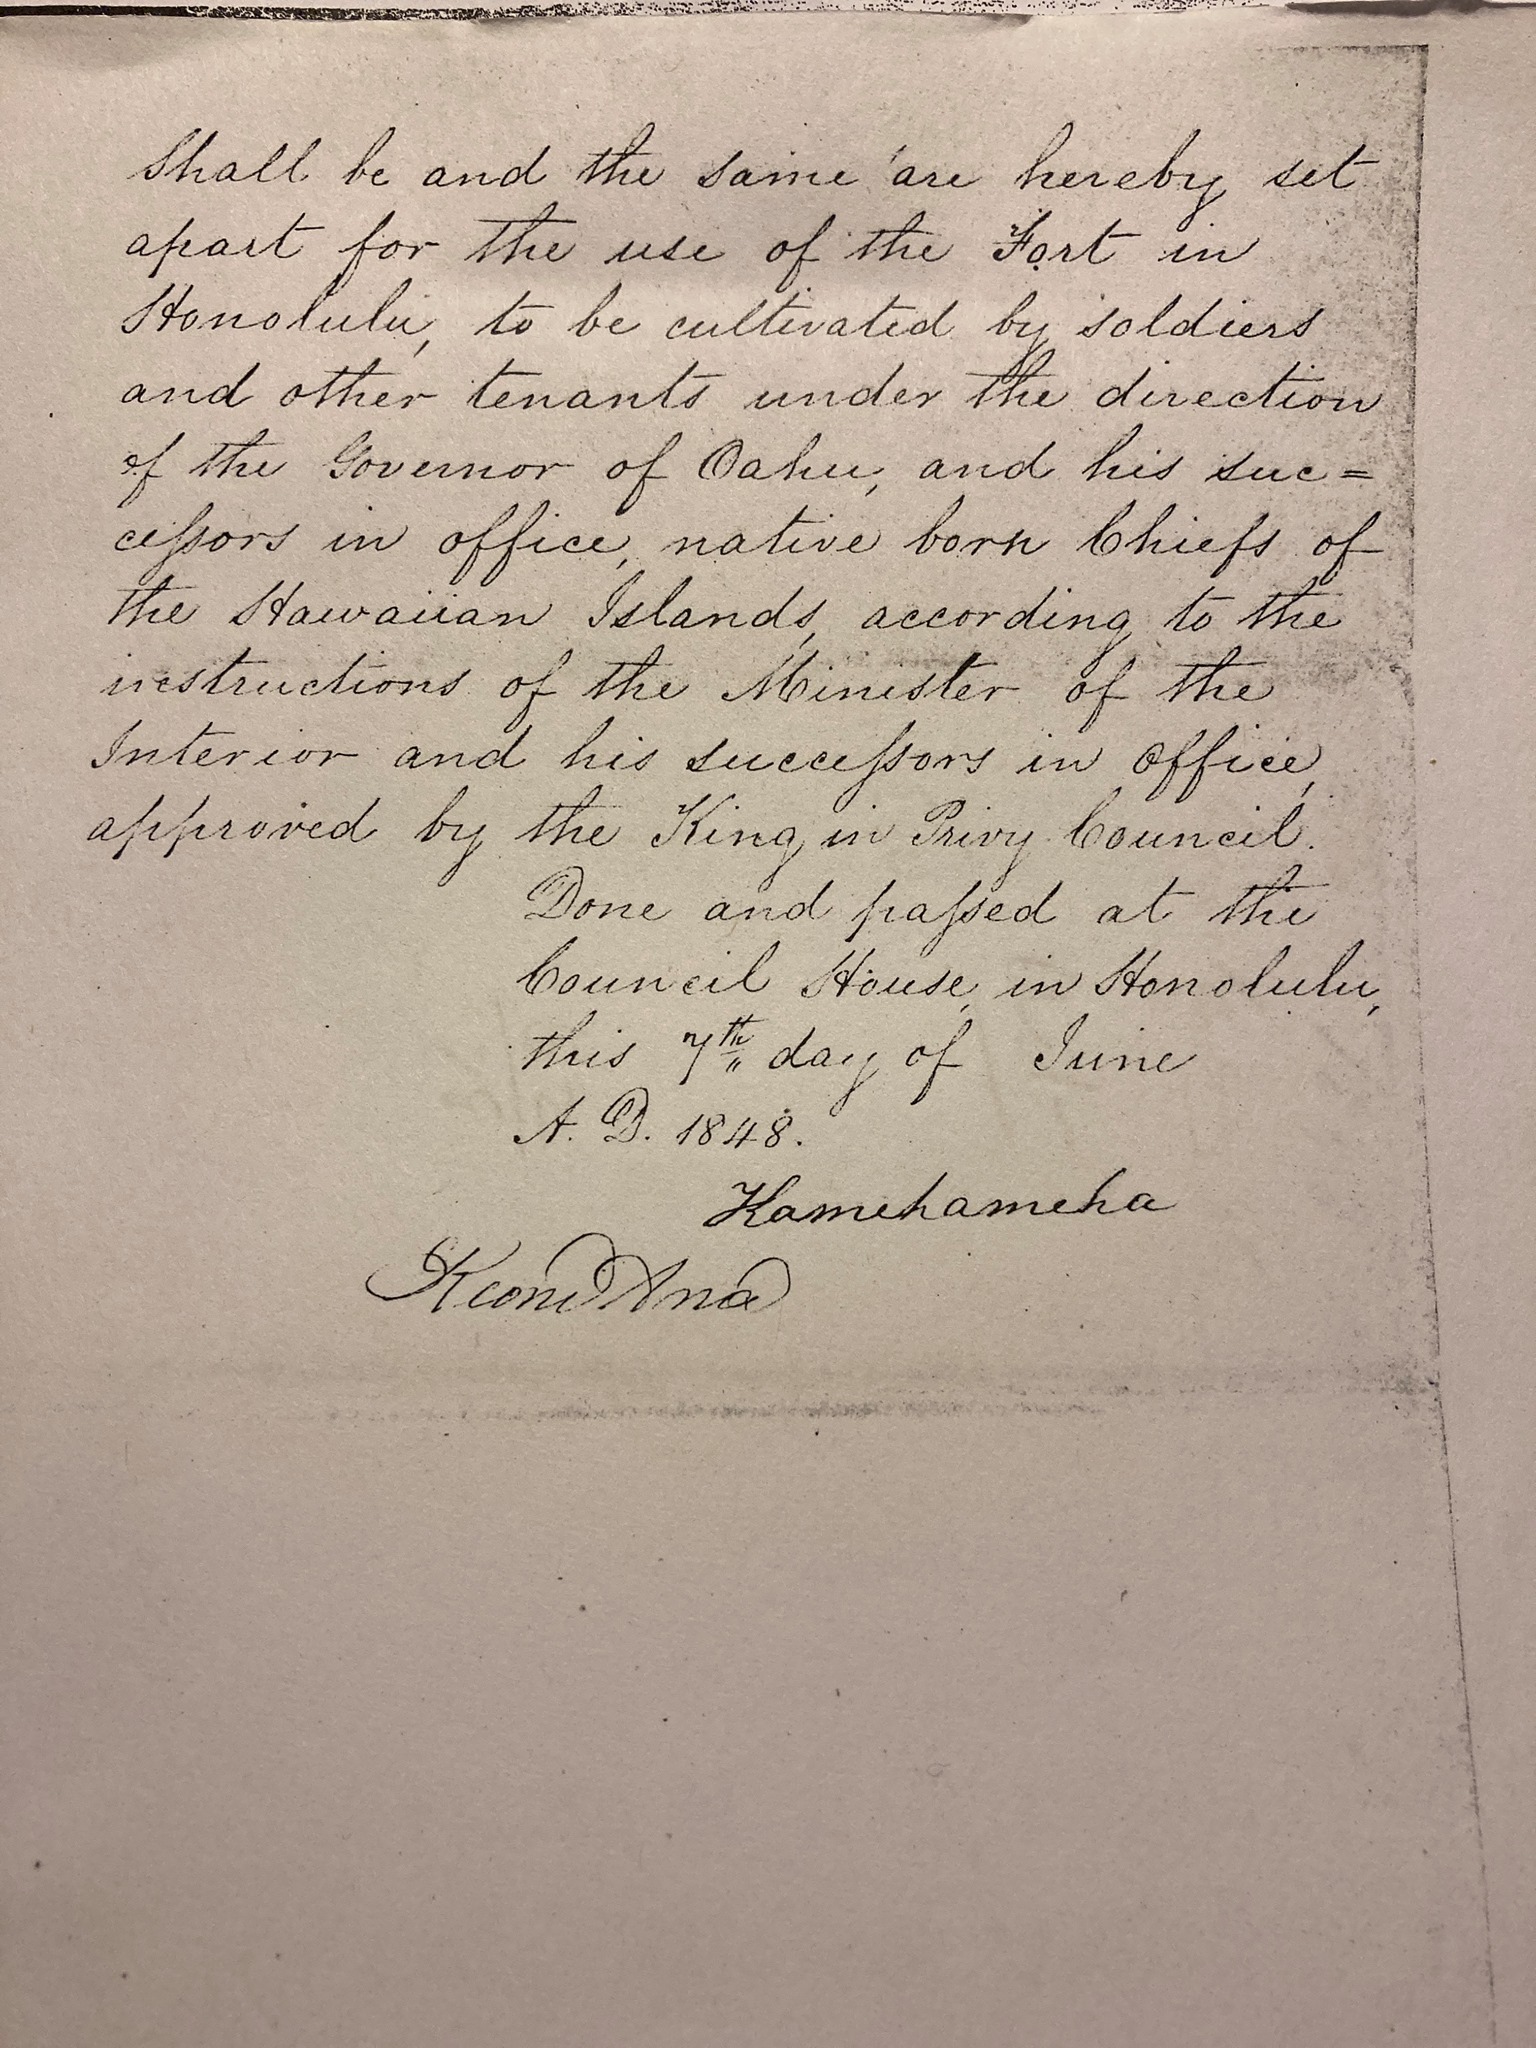 Shall be and the same are hereby set
apart for the use of the Fort in
Honolulu, to be cultivated by soldiers
and other tenants under the direction
of the Governor of Oahu, and his suc=
cessors in office, native born Chiefs of
the Hawaiian Islands, according to the
instructions of the Minister of the
Interior and his successors in office,
approved by the King in Privy Council.
Done and passed at the
Council House, in Honolulu,
this 7th day of June
A. D. 1848.
Kamehameha
Keoni Ana